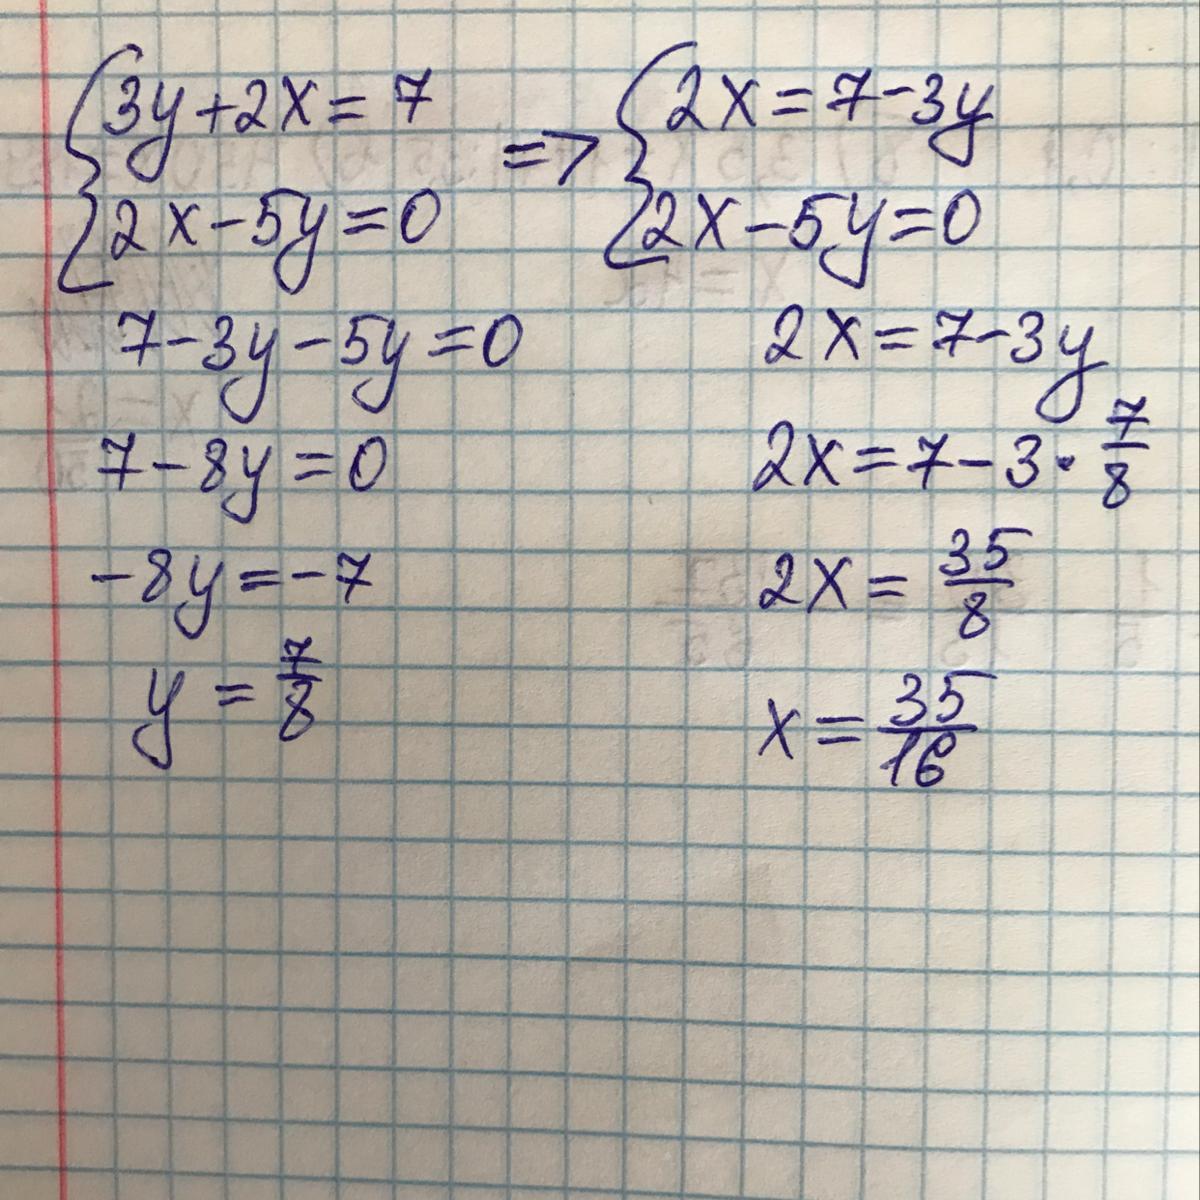 {3y+2x=7 => {2x=7-3y
{2x-5y=0 {2x-5y=0
7-3y-5y=0
7-8y=0
-8y=-7
y=7/8
2x=7-3y
2x=7-3·7/8
2x=35/8
x=35/16